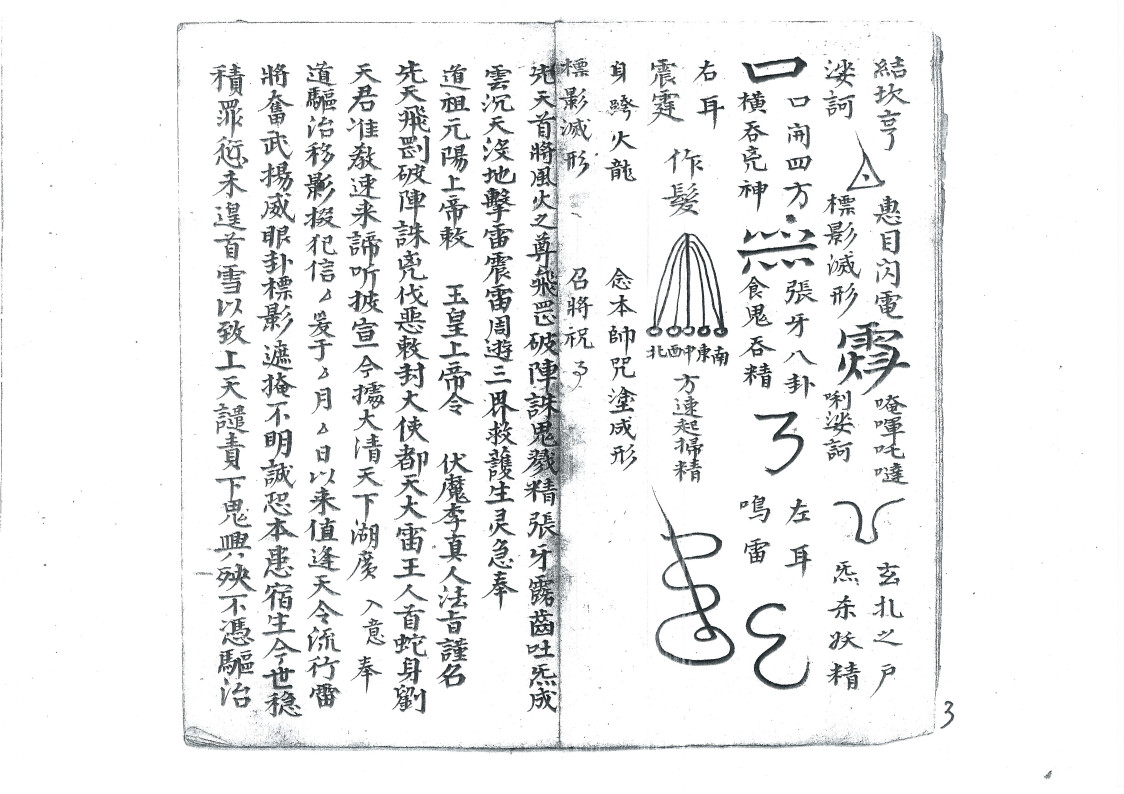 結坎亨
娑訶
惠目閃電
標影滅形
唵㖇吒噠
唎娑訶
玄扎之戶
炁杀妖精
口
口開四方
橫吞亮神
張牙八卦
食鬼吞精
左耳
鳴雷
右耳
震霆
作髮
北西中東南
方速起掃精
身跨火龍
念本帥咒塗成形
標影滅形
召將祝
先天首將風火之尊飛罡破陣誅鬼戮精張牙露齒吐炁成
雲沉天沒地擊雷震雷周遊三界救護生灵急奉
道祖元陽上帝敕 玉皇上帝令 伏魔李真人法旨謹名
先天飛罡破陣誅兇伐惡敕封大使都天大雷王人首蛇身劉
天君准教速来諦听披宣今據大清天下湖廣 入意奉
道驅治移影掇犯信厶爰于厶月厶日以来值逢天令流行雷
將奮武揚威眼卦標影遮掩不明誠恐本患宿生今世稳
積罪愆未遑首雪以致上天譴責下鬼興殃不憑驅治
3